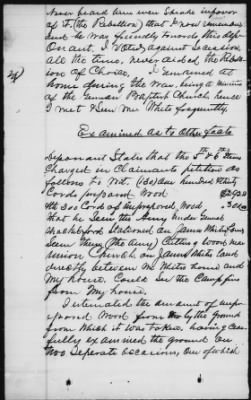 Never heard him ever speake in favor
of it (the Rebellion) that I now remember
and he was friendly towards this dep-
onant, I voted against Secession
all the time, never aided the Rebell-
ion of Choice, I remained at
home during the War, being a minister
of the German Baptist Church, hence
I met Bro White frequently
Examined as to other facts
Deponant States that the 5th & 6th Items
Charged in Claimants petition as
follows to wit, (130) One hundred & thirty
Cords for Board Wood
4th 200 Cords of Wood
That he Seen the Army under General
Stationed on James Whites farm
Seen them (the Army) Cutting Wood near
Union Church on James Whites land
directly between Mr Whites house and
My house, Could See the Camp fires
from My house,
I estimated the amount of
Wood from the by the ground
from which it was taken having care-
fully examined the ground on
two Separate occasions, One of which